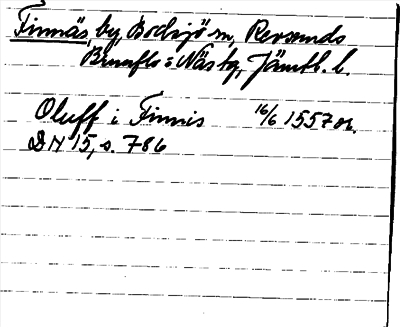 Finnäs, by, Bodsjö sn, Revsunds
Brunflo o Näs tg, Jämtl. l.
Oluff i Finnis 16/6 1557 or.
DN 15, s. 786